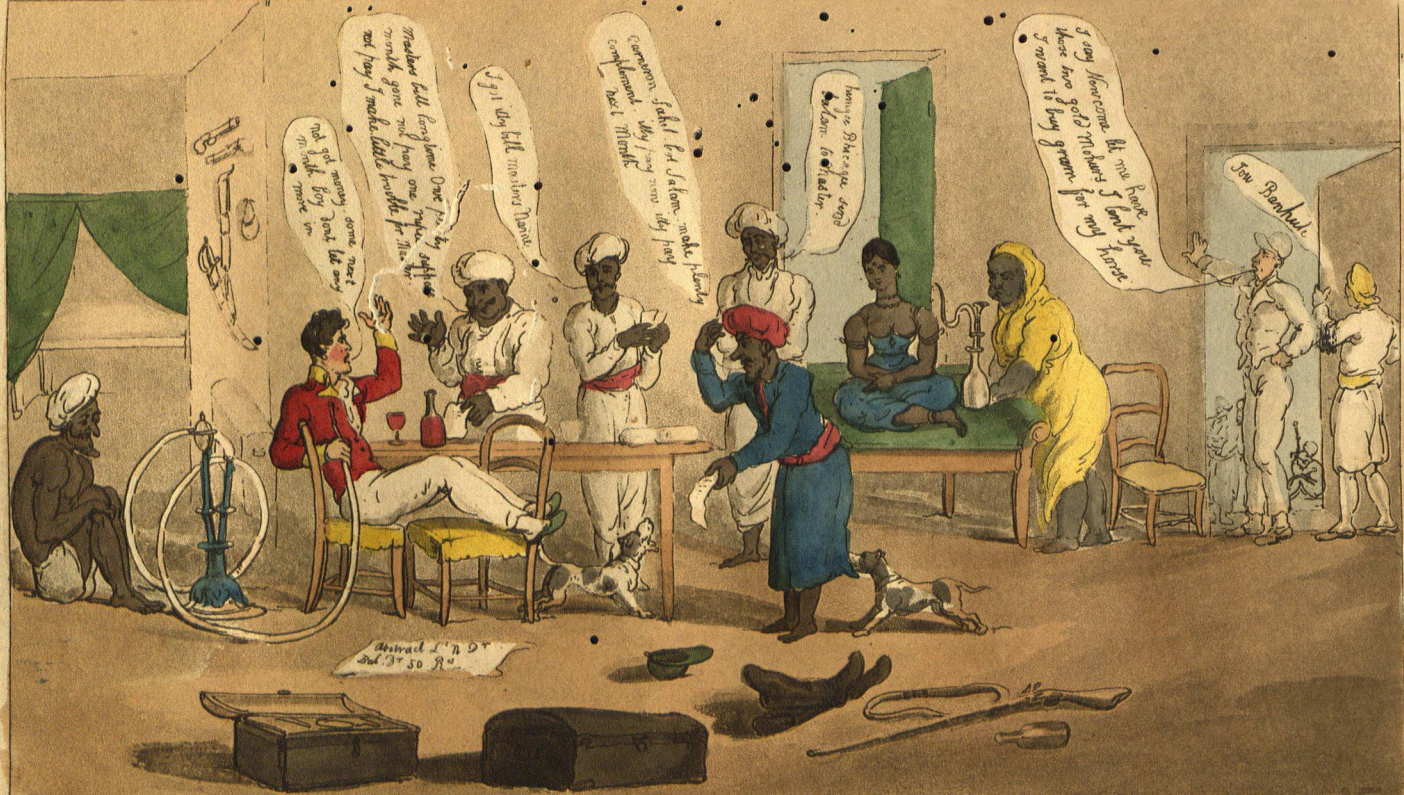 not got money. come next
month boy dont let any
more in
Masters bill long time Due
month gone not pay one rupee
not pay I make little trouble for Master
I got My bill Masters Name
Cameron Sahib bot Salam, make plenty
compliment They pay now They pay
next Month
send
Salam to Master.
I say Newcome let me have
those two gold Mohurs I lent you
I want to buy gram for my horse
Jou Banhut
Abstract Lt N Dr
Bal. Dr 50 Rs